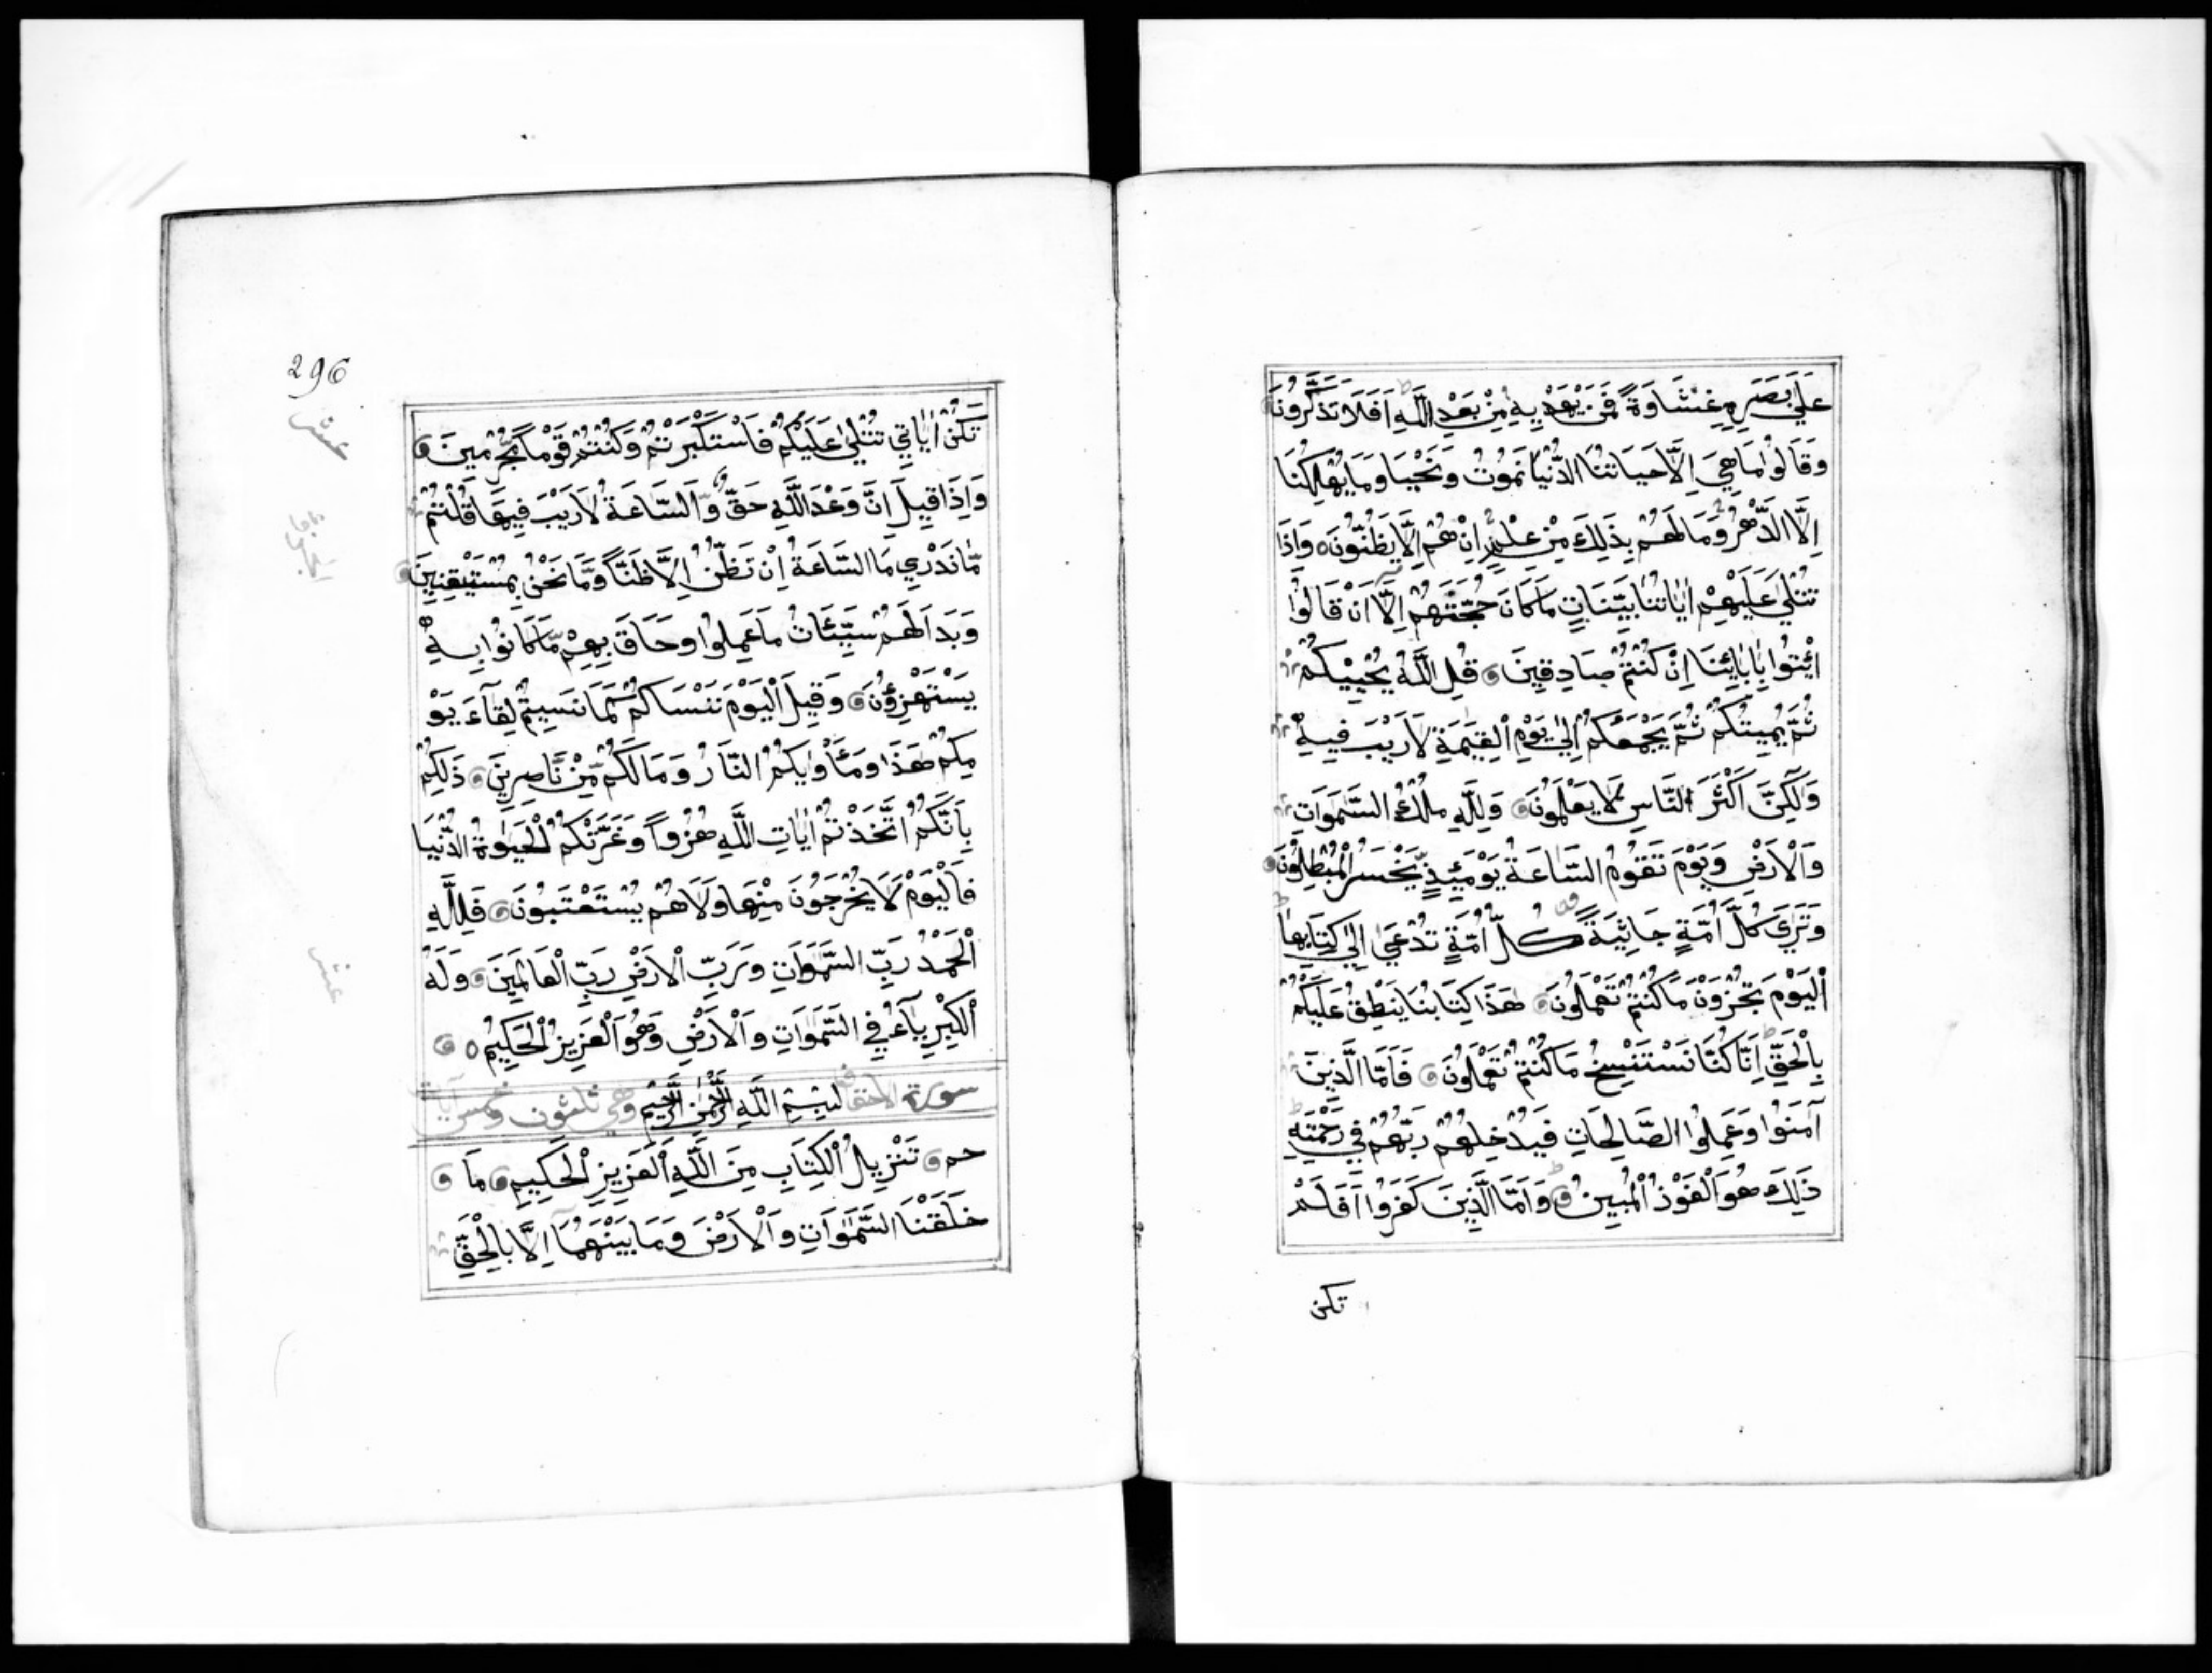 عَلَىٰ بَصَرِهِ غِشَاوَةً فَمَن يَهْدِيهِ مِنْ بَعْدِ اللَّهِ اَفَلَا تَذَكَّرُونَ
وَقَالُوا مَا هِيَ اِلَّا حَيَاتُنَا الدُّنْيَا نَمُوتُ وَنَحْيَا وَمَا يُهْلِكُنَا
اِلَّا الدَّهْرُ وَمَا لَهُمْ بِذَلِكَ مِنْ عِلْمٍ اِنْ هُمْ اِلَّا يَظُنُّونَ وَاِذَا
تُتْلَىٰ عَلَيْهِمْ اٰيَاتُنَا بَيِّنَاتٍ مَا كَانَ حُجَّتَهُمْ اِلَّا اَنْ قَالُوا
ائْتُوا بِاٰبَائِنَا اِنْ كُنْتُمْ صَادِقِينَ قُلِ اللَّهُ يُحْيِيكُمْ
ثُمَّ يُمِيتُكُمْ ثُمَّ يَجْمَعُكُمْ اِلَىٰ يَوْمِ الْقِيٰمَةِ لَا رَيْبَ فِيهِ
وَلَكِنَّ اَكْثَرَ النَّاسِ لَا يَعْلَمُونَ وَلِلَّهِ مُلْكُ السَّمٰوَاتِ
وَالْاَرْضِ وَيَوْمَ تَقُومُ السَّاعَةُ يَوْمَئِذٍ يَخْسَرُ الْمُبْطِلُونَ
وَتَرَىٰ كُلَّ اُمَّةٍ جَاثِيَةً كُلُّ اُمَّةٍ تُدْعَىٰ اِلَىٰ كِتَابِهَا
اَلْيَوْمَ تُجْزَوْنَ مَا كُنْتُمْ تَعْمَلُونَ هَذَا كِتَابُنَا يَنْطِقُ عَلَيْكُمْ
بِالْحَقِّ اِنَّا كُنَّا نَسْتَنْسِخُ مَا كُنْتُمْ تَعْمَلُونَ فَاَمَّا الَّذِينَ
آمَنُوا وَعَمِلُوا الصَّالِحَاتِ فَيُدْخِلُهُمْ رَبُّهُمْ فِي رَحْمَتِهِ
ذَلِكَ هُوَ الْفَوْزُ الْمُبِينُ وَاَمَّا الَّذِينَ كَفَرُوا اَفَلَمْ
تكن
296
عشر
تَكُنْ اٰيَاتِي تُتْلَىٰ عَلَيْكُمْ فَاسْتَكْبَرْتُمْ وَكُنْتُمْ قَوْمًا مُّجْرِمِينَ
وَاِذَا قِيلَ اِنَّ وَعْدَ اللَّهِ حَقٌّ وَّالسَّاعَةُ لَا رَيْبَ فِيهَا قُلْتُمْ
مَّا نَدْرِي مَا السَّاعَةُ اِنْ نَظُنُّ اِلَّا ظَنًّا وَّمَا نَحْنُ بِمُسْتَيْقِنِينَ
وَبَدَا لَهُمْ سَيِّئَاتُ مَا عَمِلُوا وَحَاقَ بِهِمْ مَّا كَانُوا بِهِ
يَسْتَهْزِؤُنَ وَقِيلَ الْيَوْمَ نَنْسَاكُمْ كَمَا نَسِيتُمْ لِقَآءَ يَوْ
مِكُمْ هَذَا وَمَأْوٰيكُمُ النَّارُ وَمَا لَكُمْ مِّنْ نَّاصِرِينَ ذَلِكُمْ
بِاَنَّكُمُ اتَّخَذْتُمْ اٰيَاتِ اللَّهِ هُزُوًا وَغَرَّتْكُمُ الْحَيٰوةُ الدُّنْيَا
فَالْيَوْمَ لَا يُخْرَجُونَ مِنْهَا وَلَا هُمْ يُسْتَعْتَبُونَ فَلِلَّهِ
الْحَمْدُ رَبِّ السَّمٰوَاتِ وَرَبِّ الْاَرْضِ رَبِّ الْعَالَمِينَ وَلَهُ
الْكِبْرِيَآءُ فِي السَّمٰوَاتِ وَالْاَرْضِ وَهُوَ الْعَزِيزُ الْحَكِيمُ
سورة الاحقاف بِسْمِ اللَّهِ الرَّحْمٰنِ الرَّحِيمِ وهي ثلثون وخمس آيات
حم تَنْزِيلُ الْكِتَابِ مِنَ اللَّهِ الْعَزِيزِ الْحَكِيمِ مَا
خَلَقْنَا السَّمٰوَاتِ وَالْاَرْضَ وَمَا بَيْنَهُمَا اِلَّا بِالْحَقِّ
عشر